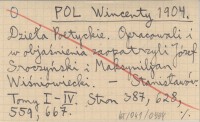 POL Wincenty 1904.
Dzieła Poetyckie. Opracowali i
w objaśnienia zaopatrzyli Józef
Sroczyński i Maksymiljan
Wiśniowiecki — Stanisławów
Tomy I-IV. Stron 587, 628,
554, 667.